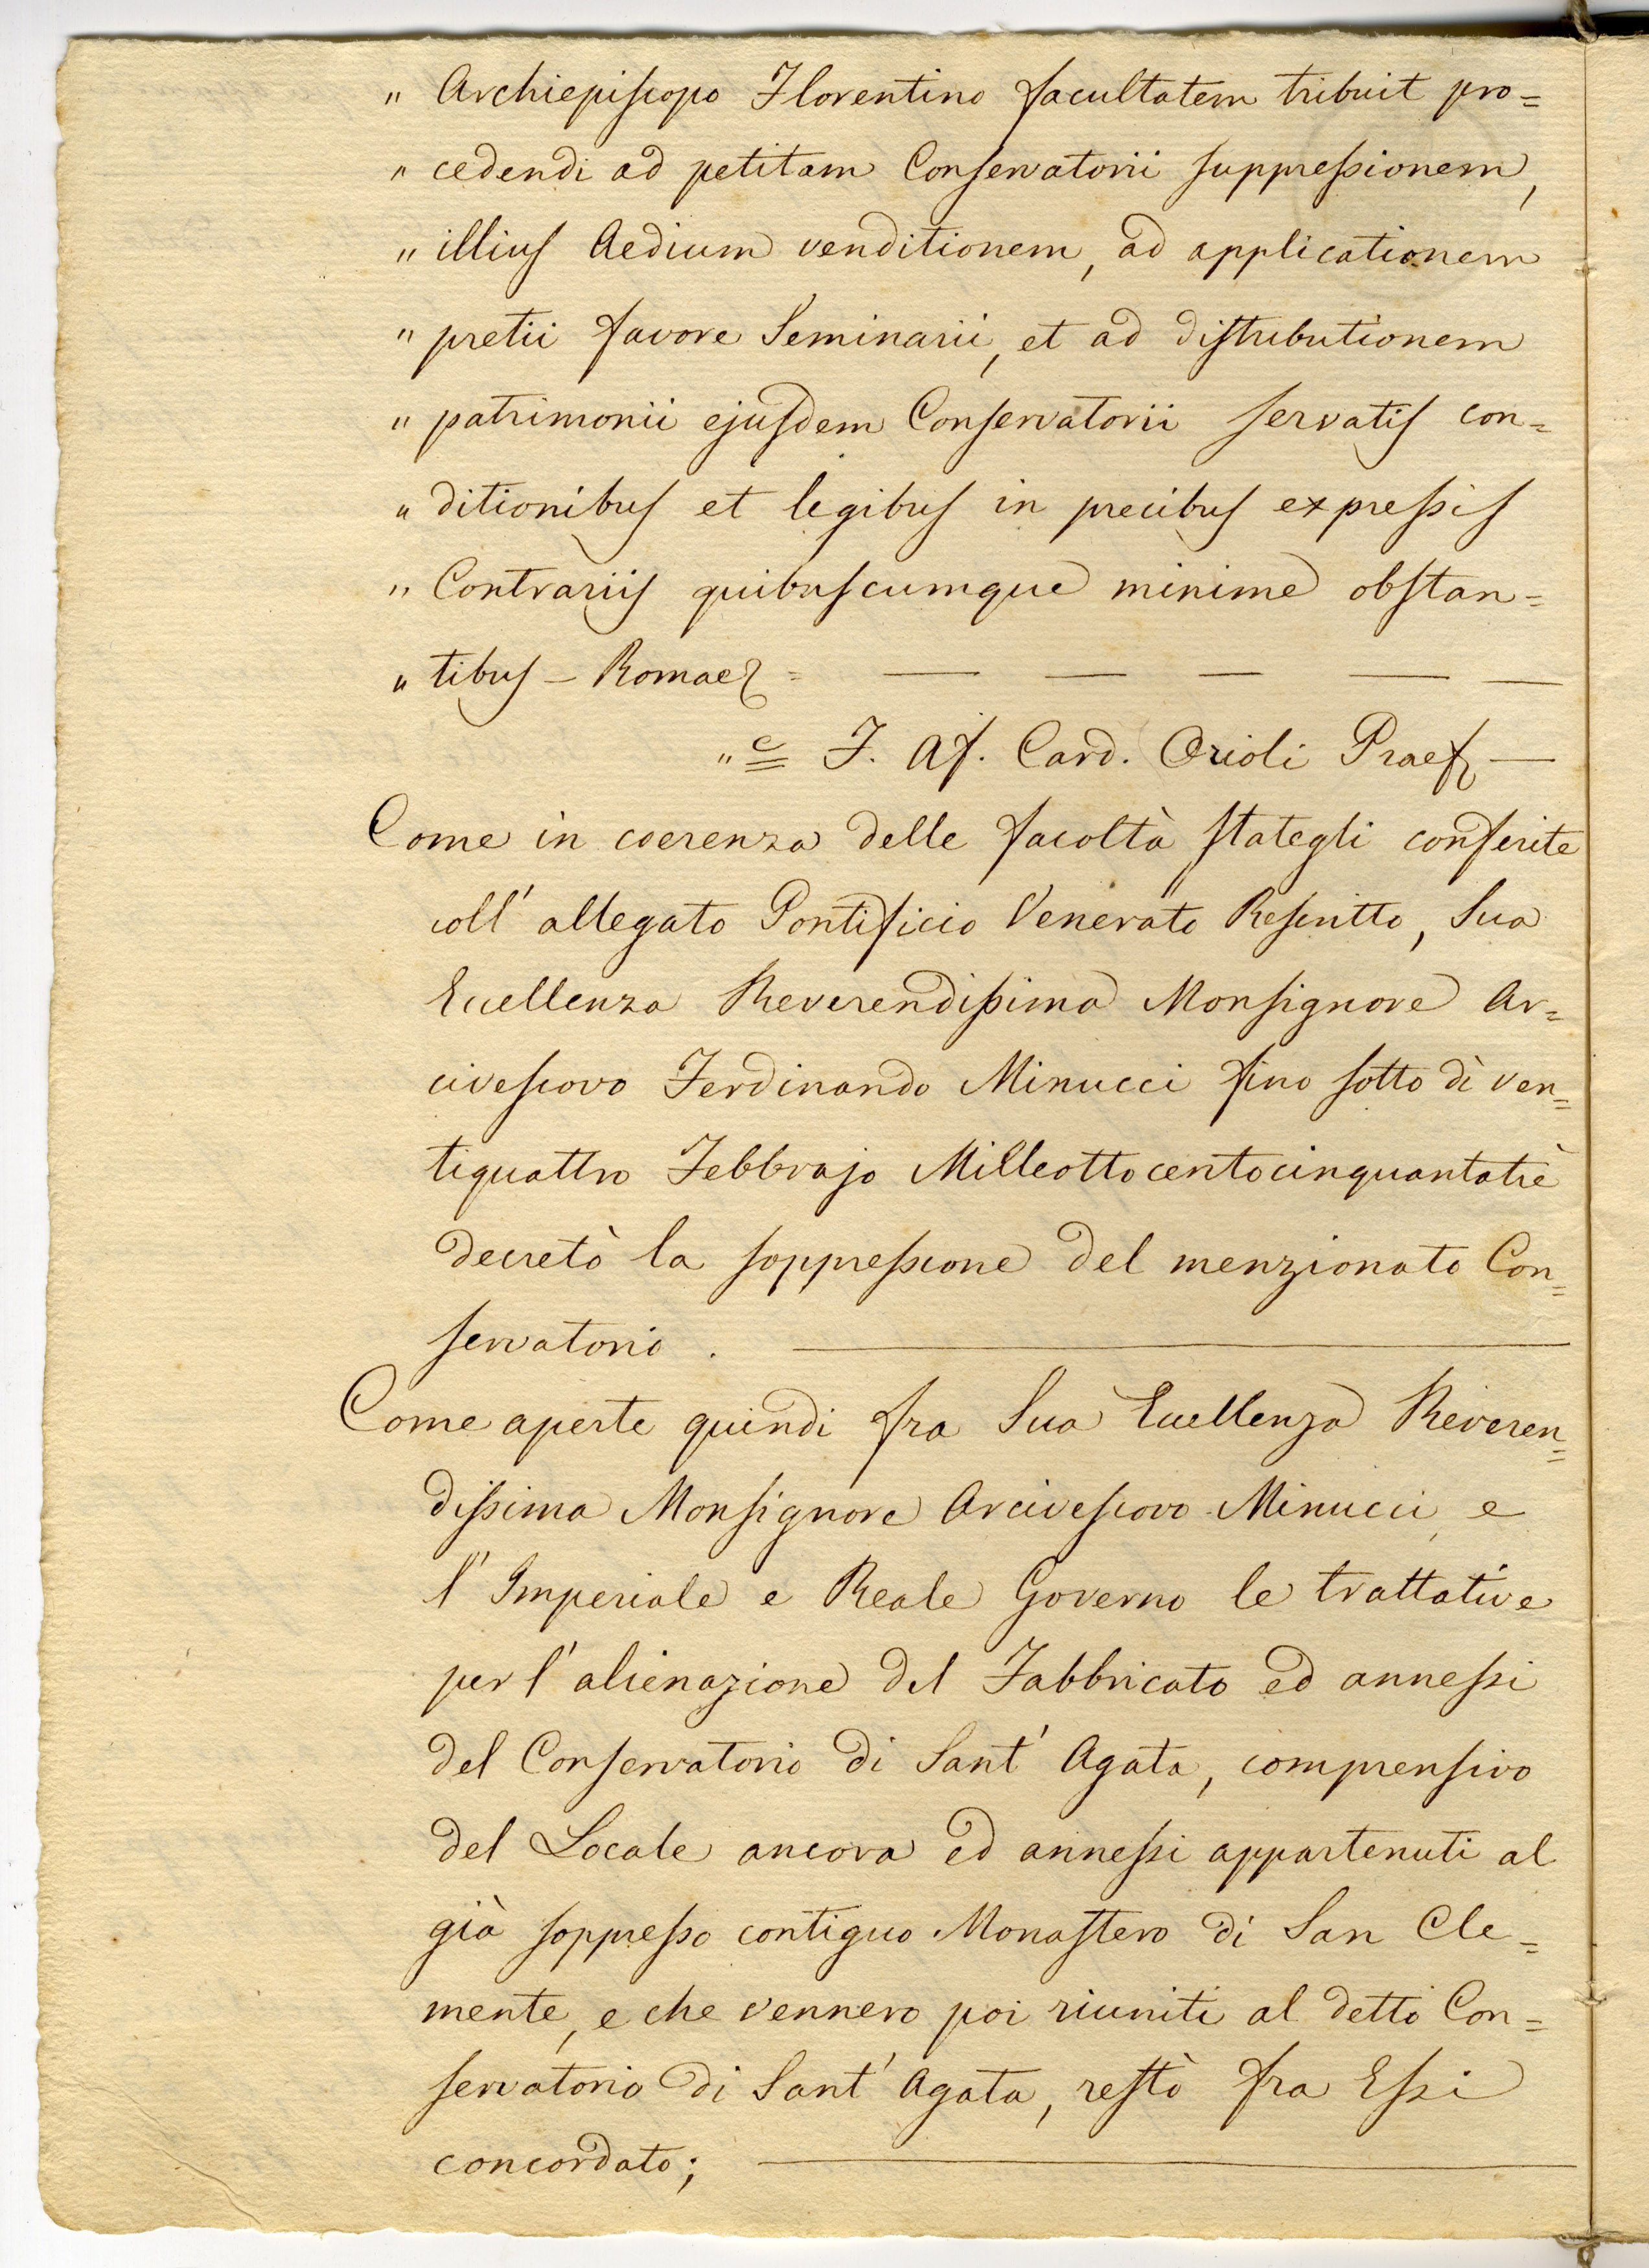 " Archiepiscopo Florentino facultatem tribuit pro=
" cedendi ad petitam Conservatorii suppressionem,
" illius Aedium venditionem, ad applicationem
" pretii favore Seminarii, et ad distributionem
" patrimonii ejusdem Conservatorii servatis con=
" ditionibus et legibus in precibus expressis
" Contrariis quibuscumque minime obstan=
" tibus – Romae =
" = F. A. Card. Orioli Praef —
Come in coerenza delle facoltà stategli conferite
coll' allegato Pontificio Venerato Rescritto, Sua
Eccellenza Reverendissima Monsignore Ar=
civescovo Ferdinando Minucci fino sotto dì ven=
tiquattro Febbrajo Milleottocentocinquantatrè
decretò la soppressione del menzionato Con=
servatorio. —
Come aperte quindi fra Sua Eccellenza Reveren=
dissima Monsignore Arcivescovo Minucci, e
l' Imperiale e Reale Governo le trattative
per l' alienazione del Fabbricato ed annessi
del Conservatorio di Sant' Agata, comprensivo
del Locale ancora ed annessi appartenuti al
già soppresso contiguo Monastero di San Cle=
mente, e che vennero poi riuniti al detto Con=
servatorio di Sant' Agata, restò fra Essi
concordato; —